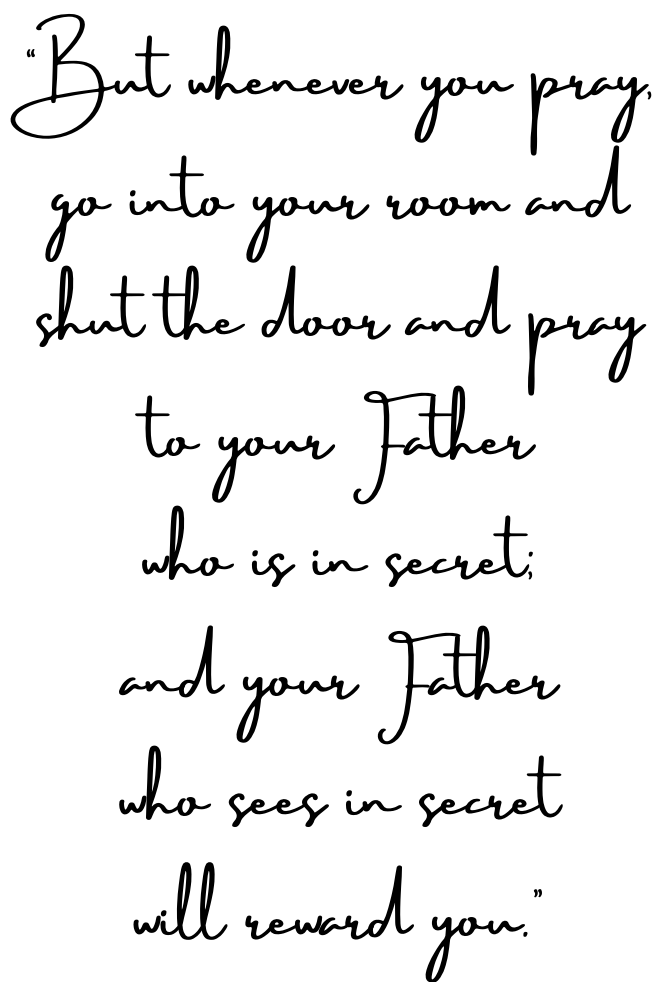 “But whenever you pray,
go into your room and
shut the door and pray
to your Father
who is in secret;
and your Father
who sees in secret
will reward you.”